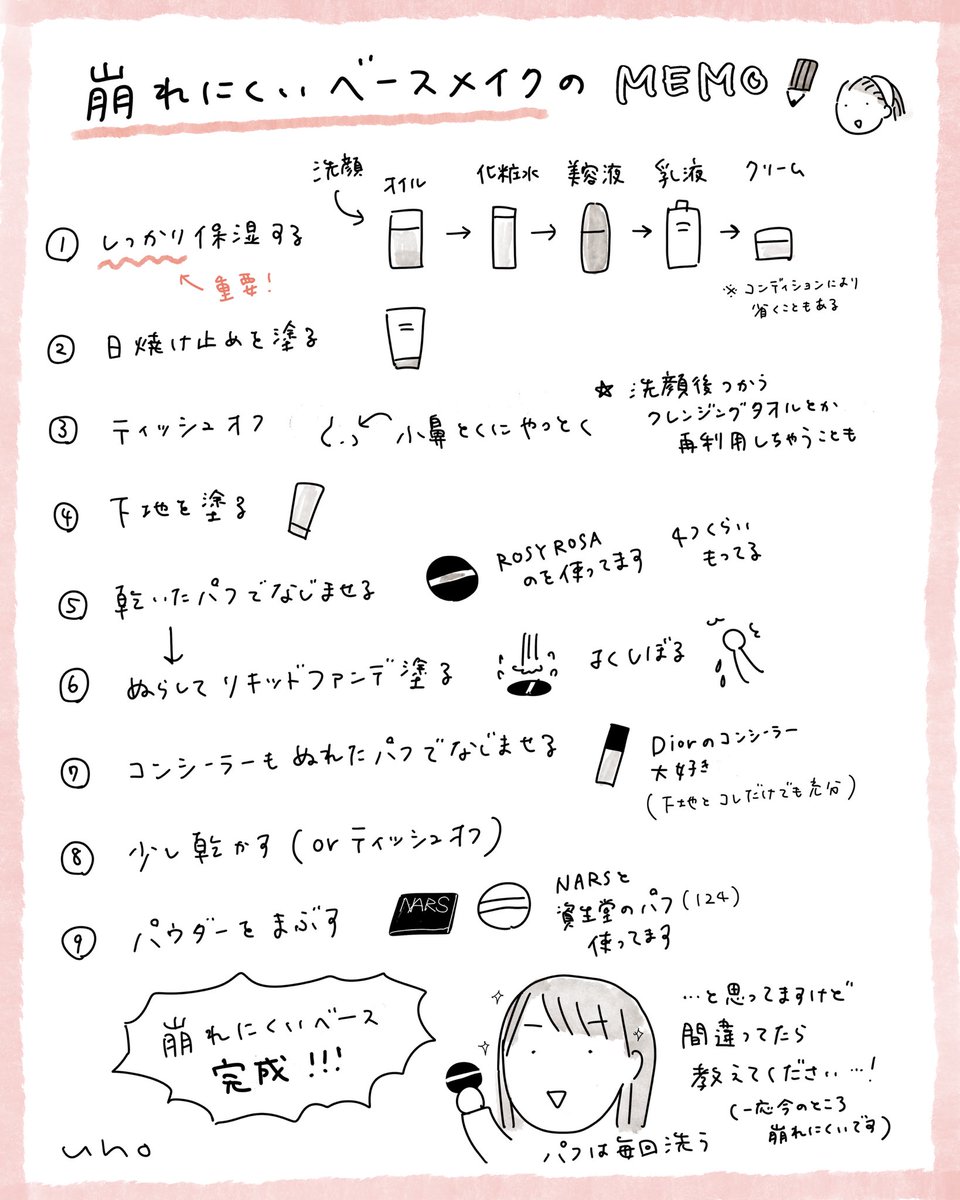 崩れにくいベースメイクの MEMO
① しっかり保湿する
重要!
洗顔
オイル → 化粧水 → 美容液 → 乳液 → クリーム
※コンディションにより
省くこともある
② 日焼け止めを塗る
③ ティッシュオフ
小鼻とくにやっとく
☆ 洗顔後つかう
クレンジングタオルとか
再利用しちゃうことも
④ 下地を塗る
⑤ 乾いたパフでなじませる
ROSY ROSA
のを使ってます
4つくらい
もってる
↓
⑥ ぬらしてリキッドファンデ塗る
よくしぼる
⑦ コンシーラーもぬれたパフでなじませる
Diorのコンシーラー
大好き
(下地とコレだけでも充分)
⑧ 少し乾かす(orティッシュオフ)
⑨ パウダーをまぶす
NARS
NARSと
資生堂のパフ(124)
使ってます
崩れにくいベース
完成!!!
…と思ってますけど
間違ってたら
教えてください…!
(一応今のところ
崩れにくいです)
パフは毎回洗う
uno